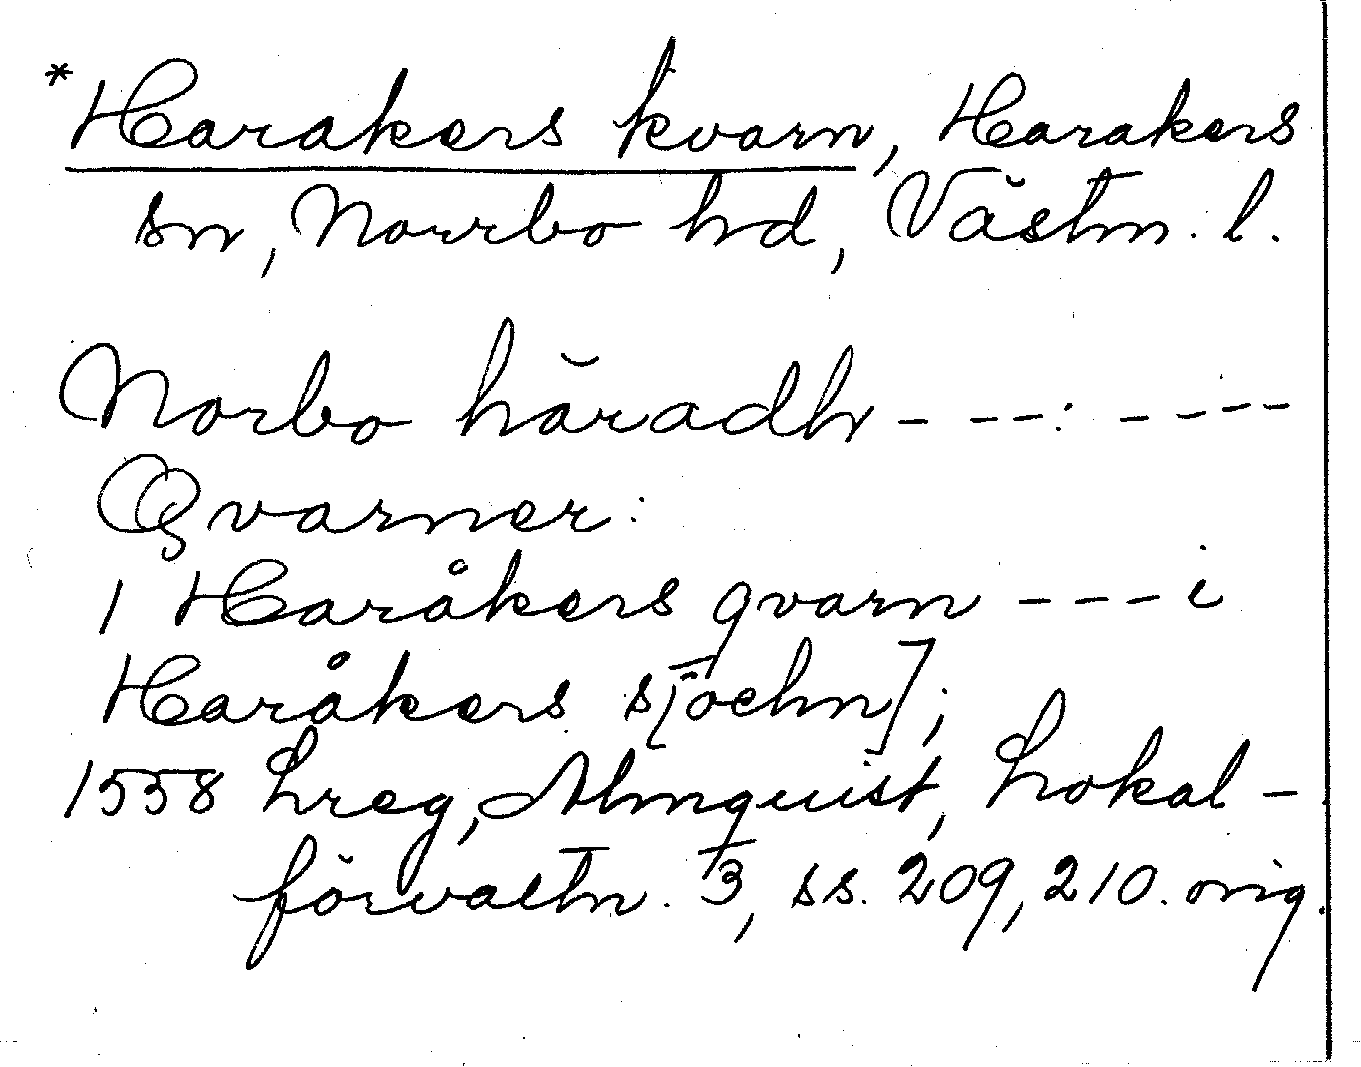 *Harakers kvarn, Harakers
sn, Norrbo hd, Västm. l.
Norbo häradh - - - -: - - - -
Qvarner:
1 Haråkers qvarn - - - i
Haråkers s[oehn];
1558 Lreg, Almquist, Lokal-
förvaltn. 3, ss. 209, 210. orig.